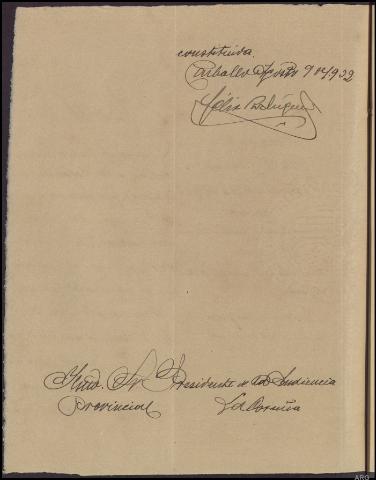 constituida.
Carballo Agosto 9 de 1932
Félix Rodríguez
Iltmo. Sr. Presidente de la Audiencia
Provincial
La Coruña
ARG